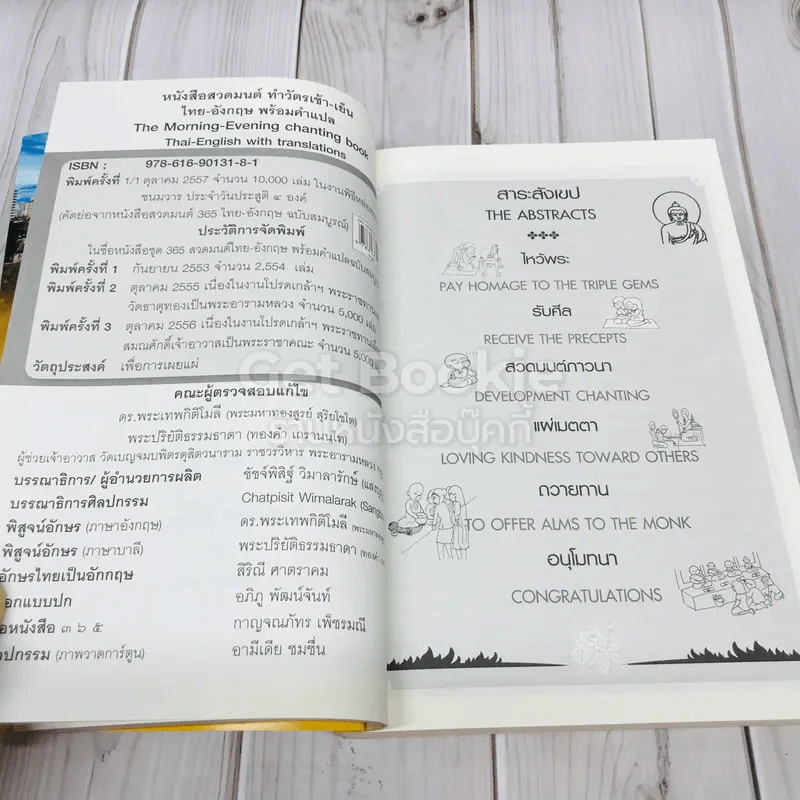 หนังสือสวดมนต์ ทำวัตรเช้า-เย็น
ไทย-อังกฤษ พร้อมคำแปล
The Morning-Evening chanting book
Thai-English with translations
ISBN : 978-616-90131-8-1
พิมพ์ครั้งที่ 1/1 ตุลาคม 2557 จำนวน 10,000 เล่ม ในงานพิธี
ชนมวาร ประจำวันประสูติ ๔ องค์
(คัดย่อจากหนังสือสวดมนต์ 365 ไทย-อังกฤษ ฉบับสมบูรณ์)
ประวัติการจัดพิมพ์
ในชื่อหนังสือชุด 365 สวดมนต์ไทย-อังกฤษ พร้อมคำแปลฉบับสมบูรณ์
พิมพ์ครั้งที่ 1 กันยายน 2553 จำนวน 2,554 เล่ม
พิมพ์ครั้งที่ 2 ตุลาคม 2555 เนื่องในงานโปรดเกล้าฯ พระราชทาน
วัดธาตุทองเป็นพระอารามหลวง จำนวน 5,000
พิมพ์ครั้งที่ 3 ตุลาคม 2556 เนื่องในงานโปรดเกล้าฯ พระราชทาน
สมณศักดิ์เจ้าอาวาสเป็นพระราชาคณะ จำนวน 5,009
วัตถุประสงค์ เพื่อการเผยแผ่
คณะผู้ตรวจสอบแก้ไข
ดร.พระเทพกิติโมลี (พระมหาทองสูรย์ สุริยโชโต)
พระปริยัติธรรมธาดา (ทองคำ เถรานนฺโท)
ผู้ช่วยเจ้าอาวาส วัดเบญจมบพิตรดุสิตวนาราม ราชวรวิหาร พระอารามหลวง
บรรณาธิการ/ ผู้อำนวยการผลิต ชัชจ์พิสิฐ วิมาลารักษ์
บรรณาธิการศิลปกรรม Chatpisit Wimalarak
พิสูจน์อักษร (ภาษาอังกฤษ) ดร.พระเทพกิติโมลี
พิสูจน์อักษร (ภาษาบาลี) พระปริยัติธรรมธาดา
อักษรไทยเป็นอังกฤษ สิริณี ศาตราคม
อกแบบปก อภิภู พัฒน์จันท์
อหนังสือ ๓ ๖ ๕ กาญจณภัทร เพ็ชรมณี
ลปกรรม (ภาพวาดการ์ตูน) อามีเดีย ชมชื่น
สาระสังเขป
THE ABSTRACTS
ไหว้พระ
PAY HOMAGE TO THE TRIPLE GEMS
รับศีล
RECEIVE THE PRECEPTS
สวดมนต์ภาวนา
DEVELOPMENT CHANTING
แผ่เมตตา
LOVING KINDNESS TOWARD OTHERS
ถวายทาน
TO OFFER ALMS TO THE MONK
อนุโมทนา
CONGRATULATIONS
Get Bookie
ร้านหนังสือบุ๊คกี้